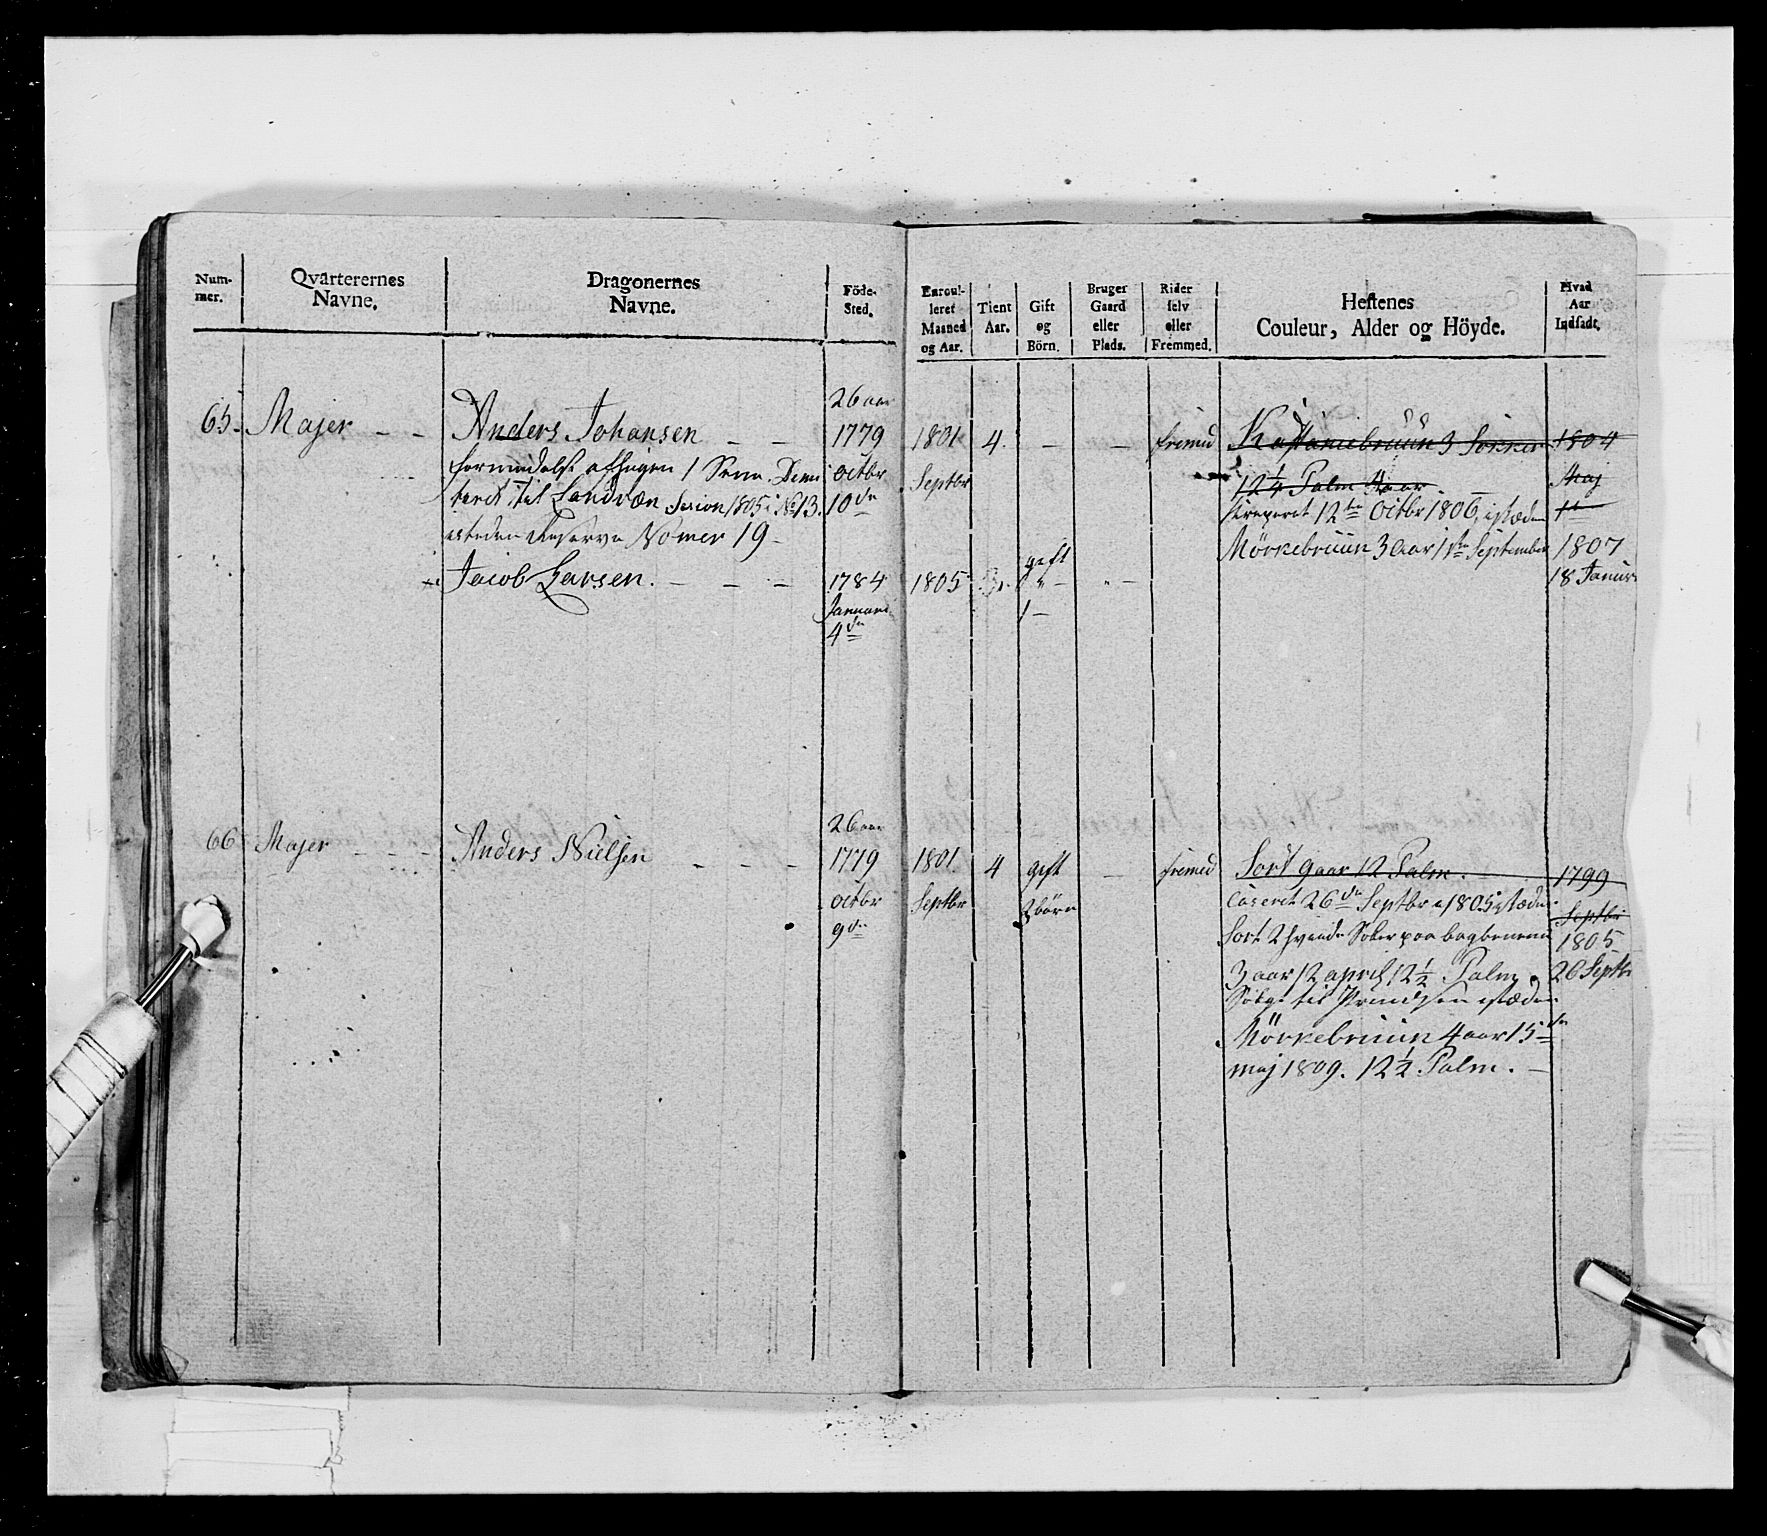 Num-
mer.
Qvarterernes
Navne.
Dragonernes
Navne.
Föde-
Sted.
Enroul-
leret
Maaned
og Aar.
Tient
Aar.
Gift
og
Börn.
Bruger
Gaard
eller
Plads.
Rider
selv
eller
Fremmed.
Hestenes
Couleur, Alder og Höyde.
Hvad
Aar
Indsadt.
65. Majer - -
Anders Johansen - -
formedelst
til Landværn Sesion 1805 No 13.
Reserve Nomer 19 -
Jacob Larsen. - - -
26 aar
1779
octbr
10de
1784
Januari
4de
1801
Septbr
1805
4.
-
gift
" -
1 -
-
" -
fremd
Kastaniebruun 3
12 1/4 Palm aar
12te Octbr 1806, istæden
Mörkebruun 3 aar 1ste September
1804
Maj
1te
1807
18 Januar
66 Majer - - -
Anders Nielsen - - -
26 aar
1779
octbr
9de
1801.
Septbr
4
gift
2 börn
-
fremed
Sort 9 aar 12 Palm.
Caseret 26de Septbr 1805 istæden
Sort 2 hvide Soker paa bagbenene
3 aar 12 april 12 1/2 Palm.
Solgt til istæden
Mörkebruun 4 aar 15de
maj 1809. 12 1/2 Palm. -
1799
Septbr
1805
26 Septbr